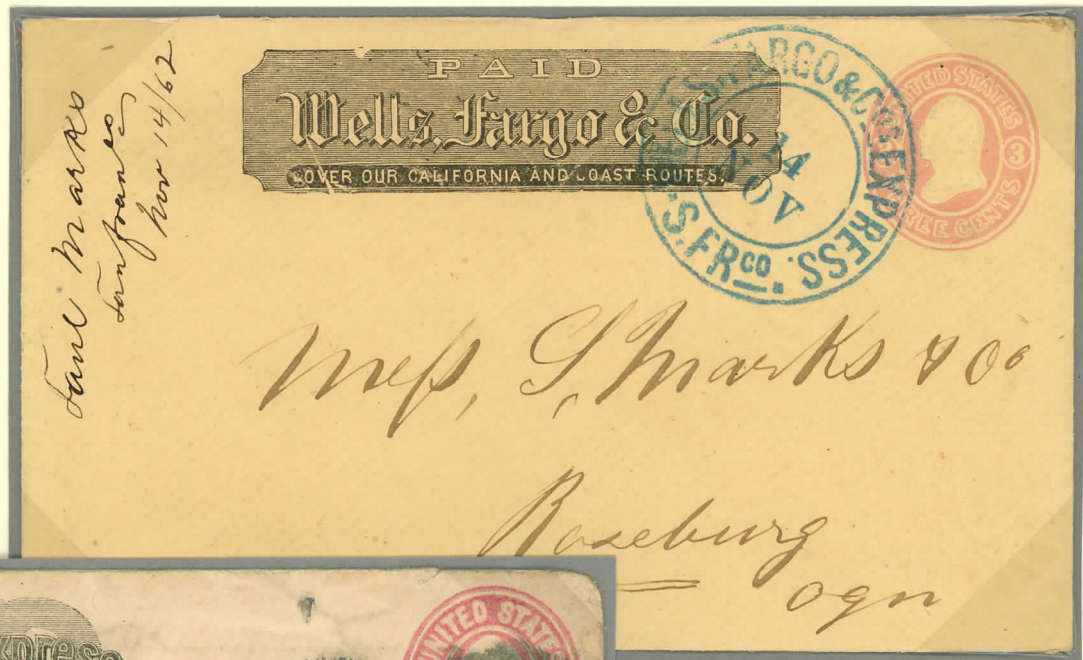 Saml Marks
San franco
Nov 14/62
PAID
Wells, Fargo & Co.
OVER OUR CALIFORNIA AND COAST ROUTES.
WELLS, FARGO & CO'S EXPRESS.
14
NOV
S. FRCO.
UNITED STATES
3
THREE CENTS
Mess, S, Marks & Co
Roseburg
Ogn
Express
UNITED STATES